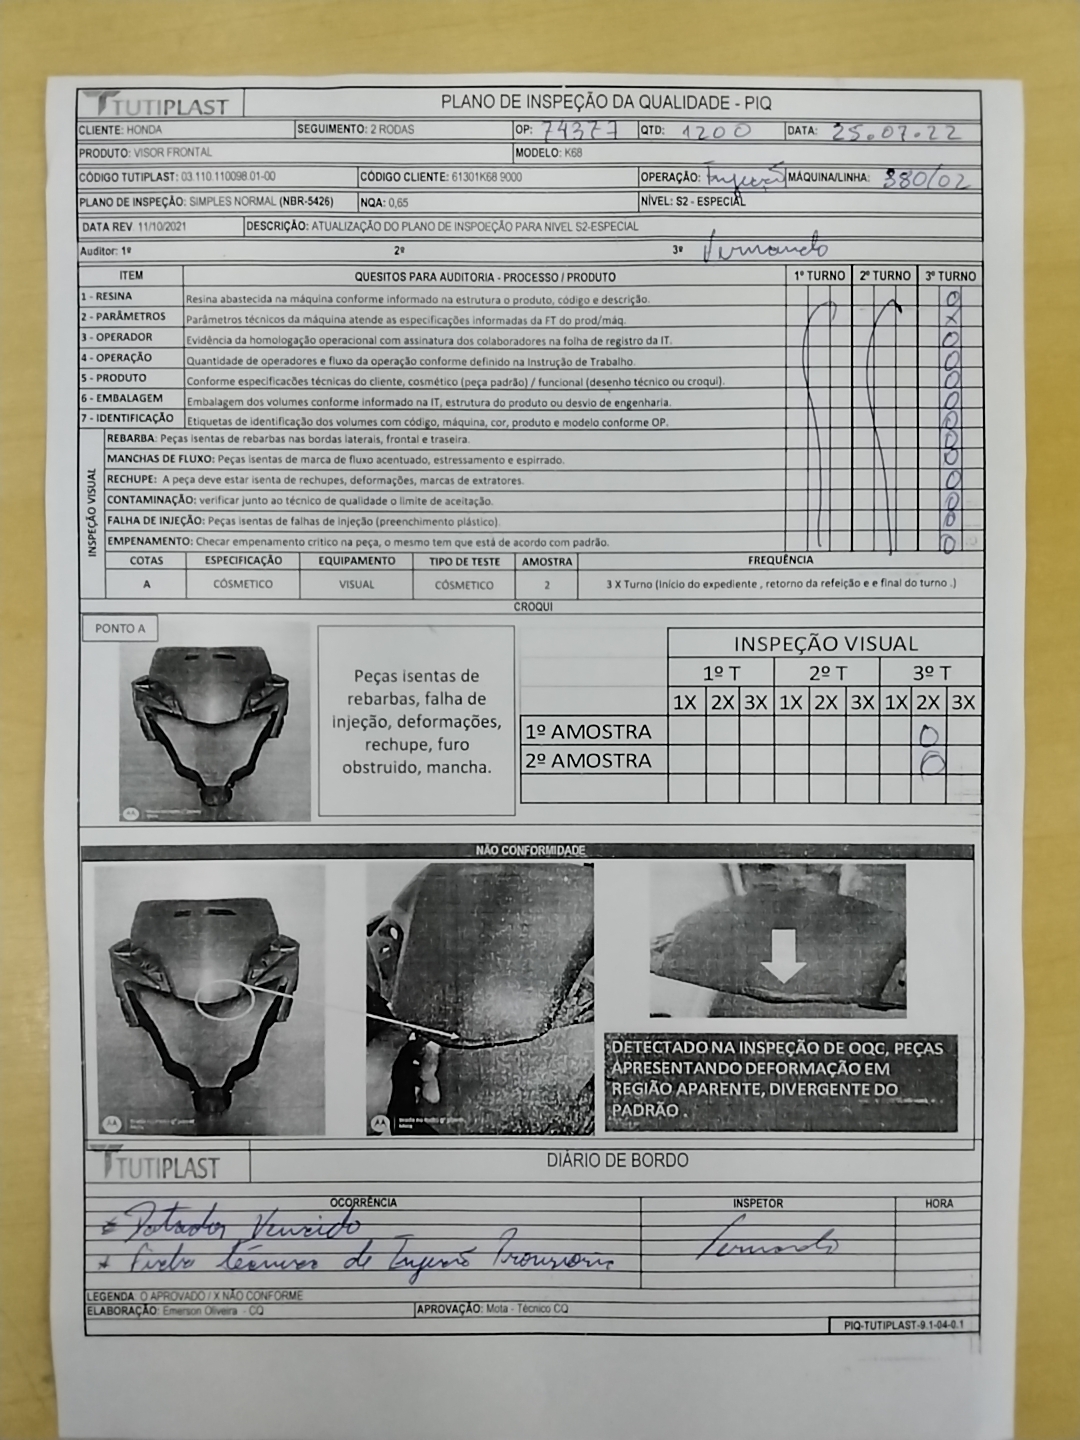 TUTIPLAST PLANO DE INSPEÇÃO DA QUALIDADE - PIQ
CLIENTE: HONDA SEGUIMENTO: 2 RODAS OP: 74377 QTD: 1200 DATA: 25.07.22
PRODUTO: VISOR FRONTAL MODELO: K68
CÓDIGO TUTIPLAST: 03.110.110098.01-00 CÓDIGO CLIENTE: 61301K68 9000 OPERAÇÃO: Injeção MÁQUINA/LINHA: 380/02
PLANO DE INSPEÇÃO: SIMPLES NORMAL (NBR-5426) NQA: 0,65 NÍVEL: S2 - ESPECIAL
DATA REV 11/10/2021 DESCRIÇÃO: ATUALIZAÇÃO DO PLANO DE INSPOEÇÃO PARA NIVEL S2-ESPECIAL
Auditor: 1º 2º 3º Fernando
ITEM QUESITOS PARA AUDITORIA - PROCESSO / PRODUTO 1º TURNO 2º TURNO 3º TURNO
1 - RESINA Resina abastecida na máquina conforme informado na estrutura o produto, código e descrição. O
2 - PARÂMETROS Parâmetros técnicos da máquina atende as especificações informadas da FT do prod/máq. X
3 - OPERADOR Evidência da homologação operacional com assinatura dos colaboradores na folha de registro da IT. O
4 - OPERAÇÃO Quantidade de operadores e fluxo da operação conforme definido na Instrução de Trabalho. O
5 - PRODUTO Conforme especificacões técnicas do cliente, cosmético (peça padrão) / funcional (desenho técnico ou croqui). O
6 - EMBALAGEM Embalagem dos volumes conforme informado na IT, estrutura do produto ou desvio de engenharia. O
7 - IDENTIFICAÇÃO Etiquetas de identificação dos volumes com código, máquina, cor, produto e modelo conforme OP. O
INSPEÇÃO VISUAL
REBARBA: Peças isentas de rebarbas nas bordas laterais, frontal e traseira. O
MANCHAS DE FLUXO: Peças isentas de marca de fluxo acentuado, estressamento e espirrado. O
RECHUPE: A peça deve estar isenta de rechupes, deformações, marcas de extratores. O
CONTAMINAÇÃO: verificar junto ao técnico de qualidade o limite de aceitação. O
FALHA DE INJEÇÃO: Peças isentas de falhas de injeção (preenchimento plástico). O
EMPENAMENTO: Checar empenamento critico na peça, o mesmo tem que está de acordo com padrão. O
COTAS ESPECIFICAÇÃO EQUIPAMENTO TIPO DE TESTE AMOSTRA FREQUÊNCIA
A CÓSMETICO VISUAL CÓSMETICO 2 3 X Turno (Início do expediente , retorno da refeição e e final do turno .)
CROQUI
PONTO A
Peças isentas de
rebarbas, falha de
injeção, deformações,
rechupe, furo
obstruido, mancha.
INSPEÇÃO VISUAL
1º T 2º T 3º T
1X 2X 3X 1X 2X 3X 1X 2X 3X
1º AMOSTRA O
2º AMOSTRA O
NÃO CONFORMIDADE
DETECTADO NA INSPEÇÃO DE OQC, PEÇAS
APRESENTANDO DEFORMAÇÃO EM
REGIÃO APARENTE, DIVERGENTE DO
PADRÃO .
TUTIPLAST DIÁRIO DE BORDO
OCORRÊNCIA INSPETOR HORA
* Datador Vencido
* Ficha técnica de Injeção Provisória Fernando
LEGENDA: O APROVADO / X NÃO CONFORME
ELABORAÇÃO: Emerson Oliveira - CQ APROVAÇÃO: Mota - Técnico CQ
PIQ-TUTIPLAST-9.1-04-0.1